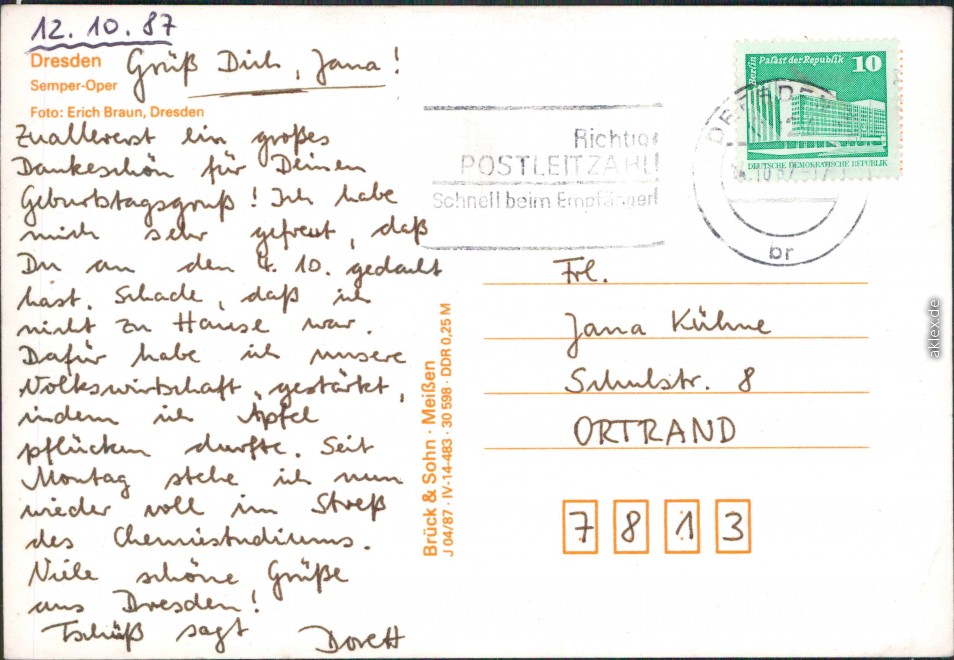 12.10.87
Dresden
Semper-Oper
Foto: Erich Braun, Dresden
Grüß Dich, Jana!
Zuallererst ein großes
Dankeschön für Deinen
Geburtstagsgruß! Ich habe
mich sehr gefreut, daß
Du an den 4.10. gedacht
hast. Schade, daß ich
nicht zu Hause war.
Dafür habe ich unsere
Volkswirtschaft gestärkt,
indem ich Äpfel
pflücken durfte. Seit
Montag stehe ich nun
wieder voll im Streß
des Chemiestudiums.
Viele schöne Grüße
aus Dresden!
Tschüß sagt Dorett
Brück & Sohn · Meißen
J 04/87 · IV-14-483 · 30 598 · DDR 0,25 M
Richtige
POSTLEITZAHL!
Schnell beim Empfänger!
DRESDEN
br
Berlin Palast der Republik 10
DEUTSCHE DEMOKRATISCHE REPUBLIK
Frl.
Jana Kühne
Schulstr. 8
ORTRAND
7813
aklex.de